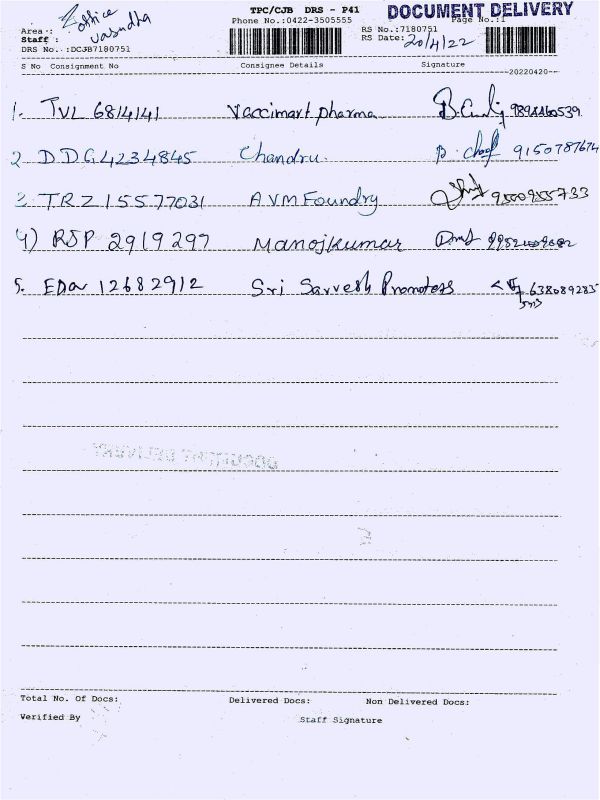 TPC/CJB DRS - P41
DOCUMENT DELIVERY
Phone No.:0422-3505555
Page No.:1
Area : office
Staff : Vasudha
RS No.:7180751
RS Date: 20/4/22
DRS No.:DCJB7180751
S No Consignment No Consignee Details Signature
20220420
1. TVL 6814141 Vaccimart pharma 9894460539
2. DDG4234845 Chandru 9150787674
3. TRZ 15577031 AVM Foundry 9500955733
4) RSP 2919297 Manojkumar
5. 12682912 Sri Sarvesh Promoters
DOCUMENT DELIVERY
Total No. Of Docs: Delivered Docs: Non Delivered Docs:
Verified By Staff Signature